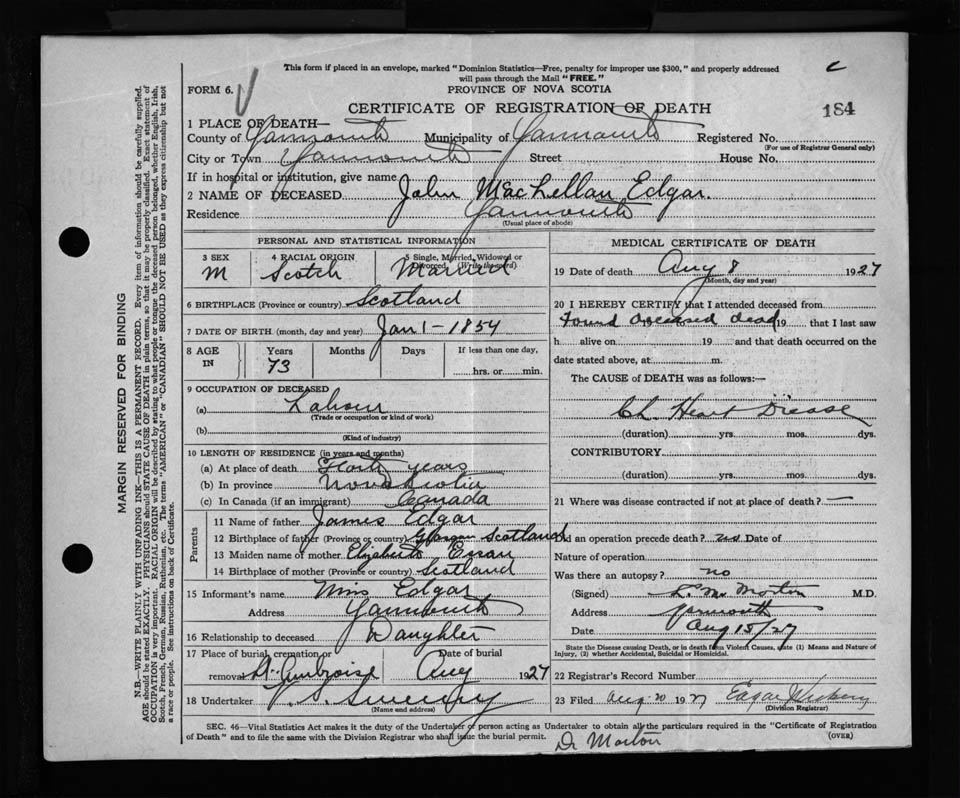 This form if placed in an envelope, marked "Dominion Statistics—Free, penalty for improper use $300," and properly addressed
will pass through the Mail "FREE."
FORM 6.
PROVINCE OF NOVA SCOTIA
c
CERTIFICATE OF REGISTRATION OF DEATH
184
1 PLACE OF DEATH—
County of Yarmouth Municipality of Yarmouth Registered No.
(For use of Registrar General only)
City or Town Yarmouth Street House No.
If in hospital or institution, give name
2 NAME OF DECEASED John MacLellan Edgar.
Residence Yarmouth
(Usual place of abode)
PERSONAL AND STATISTICAL INFORMATION
3 SEX M
4 RACIAL ORIGIN Scotch
5 Single, Married, Widowed or Divorced (Write the word) Married
6 BIRTHPLACE (Province or country) Scotland
7 DATE OF BIRTH (month, day and year) Jan 1 - 1854
8 AGE IN Years Months Days If less than one day,
73 hrs. or min.
9 OCCUPATION OF DECEASED
(a) Labour
(Trade or occupation or kind of work)
(b)
(Kind of industry)
10 LENGTH OF RESIDENCE (in years and months)
(a) At place of death years
(b) In province Nova Scotia
(c) In Canada (if an immigrant) Canada
Parents
11 Name of father James Edgar
12 Birthplace of father (Province or country) Glasgow Scotland
13 Maiden name of mother Elizabeth
14 Birthplace of mother (Province or country) Scotland
15 Informant's name Miss Edgar
Address Yarmouth
16 Relationship to deceased Daughter
17 Place of burial, cremation or Date of burial
removal St. Ambroise Aug 1927
18 Undertaker V. S. Sweeny
(Name and address)
MEDICAL CERTIFICATE OF DEATH
19 Date of death Aug 8 1927
(Month, day and year)
20 I HEREBY CERTIFY that I attended deceased from
Found Deceased dead 19 that I last saw
h alive on 19 and that death occurred on the
date stated above, at m.
The CAUSE of DEATH was as follows:—
Ch. Heart Diease
(duration) yrs. mos. dys.
CONTRIBUTORY
(duration) yrs. mos. dys.
21 Where was disease contracted if not at place of death? —
Did an operation precede death? no Date of
Nature of operation
Was there an autopsy? no
(Signed) L. M. Morton M.D.
Address Yarmouth
Date Aug 15/27
State the Disease causing Death, or in death from Violent Causes, state (1) Means and Nature of
Injury, (2) whether Accidental, Suicidal or Homicidal.
22 Registrar's Record Number
23 Filed Aug 20 1927 Edgar
(Division Registrar)
SEC. 46—Vital Statistics Act makes it the duty of the Undertaker or person acting as Undertaker to obtain all the particulars required in the "Certificate of Registration
of Death" and to file the same with the Division Registrar who shall issue the burial permit.
(OVER)
Dr Morton
MARGIN RESERVED FOR BINDING
N.B.—WRITE PLAINLY WITH UNFADING INK—THIS IS A PERMANENT RECORD. Every item of information should be carefully supplied.
AGE should be stated EXACTLY. PHYSICIANS should STATE CAUSE OF DEATH in plain terms, so that it may be properly classified. Exact statement of
OCCUPATION is very important. RACIAL ORIGIN will be described by stating to what people or tongue the deceased person belonged, whether English, Irish,
Scotch, French, German, Russian, Ruthenian, etc. The terms "AMERICAN" or "CANADIAN" SHOULD NOT BE USED as they express citizenship but not
a race or people. See instructions on back of Certificate.